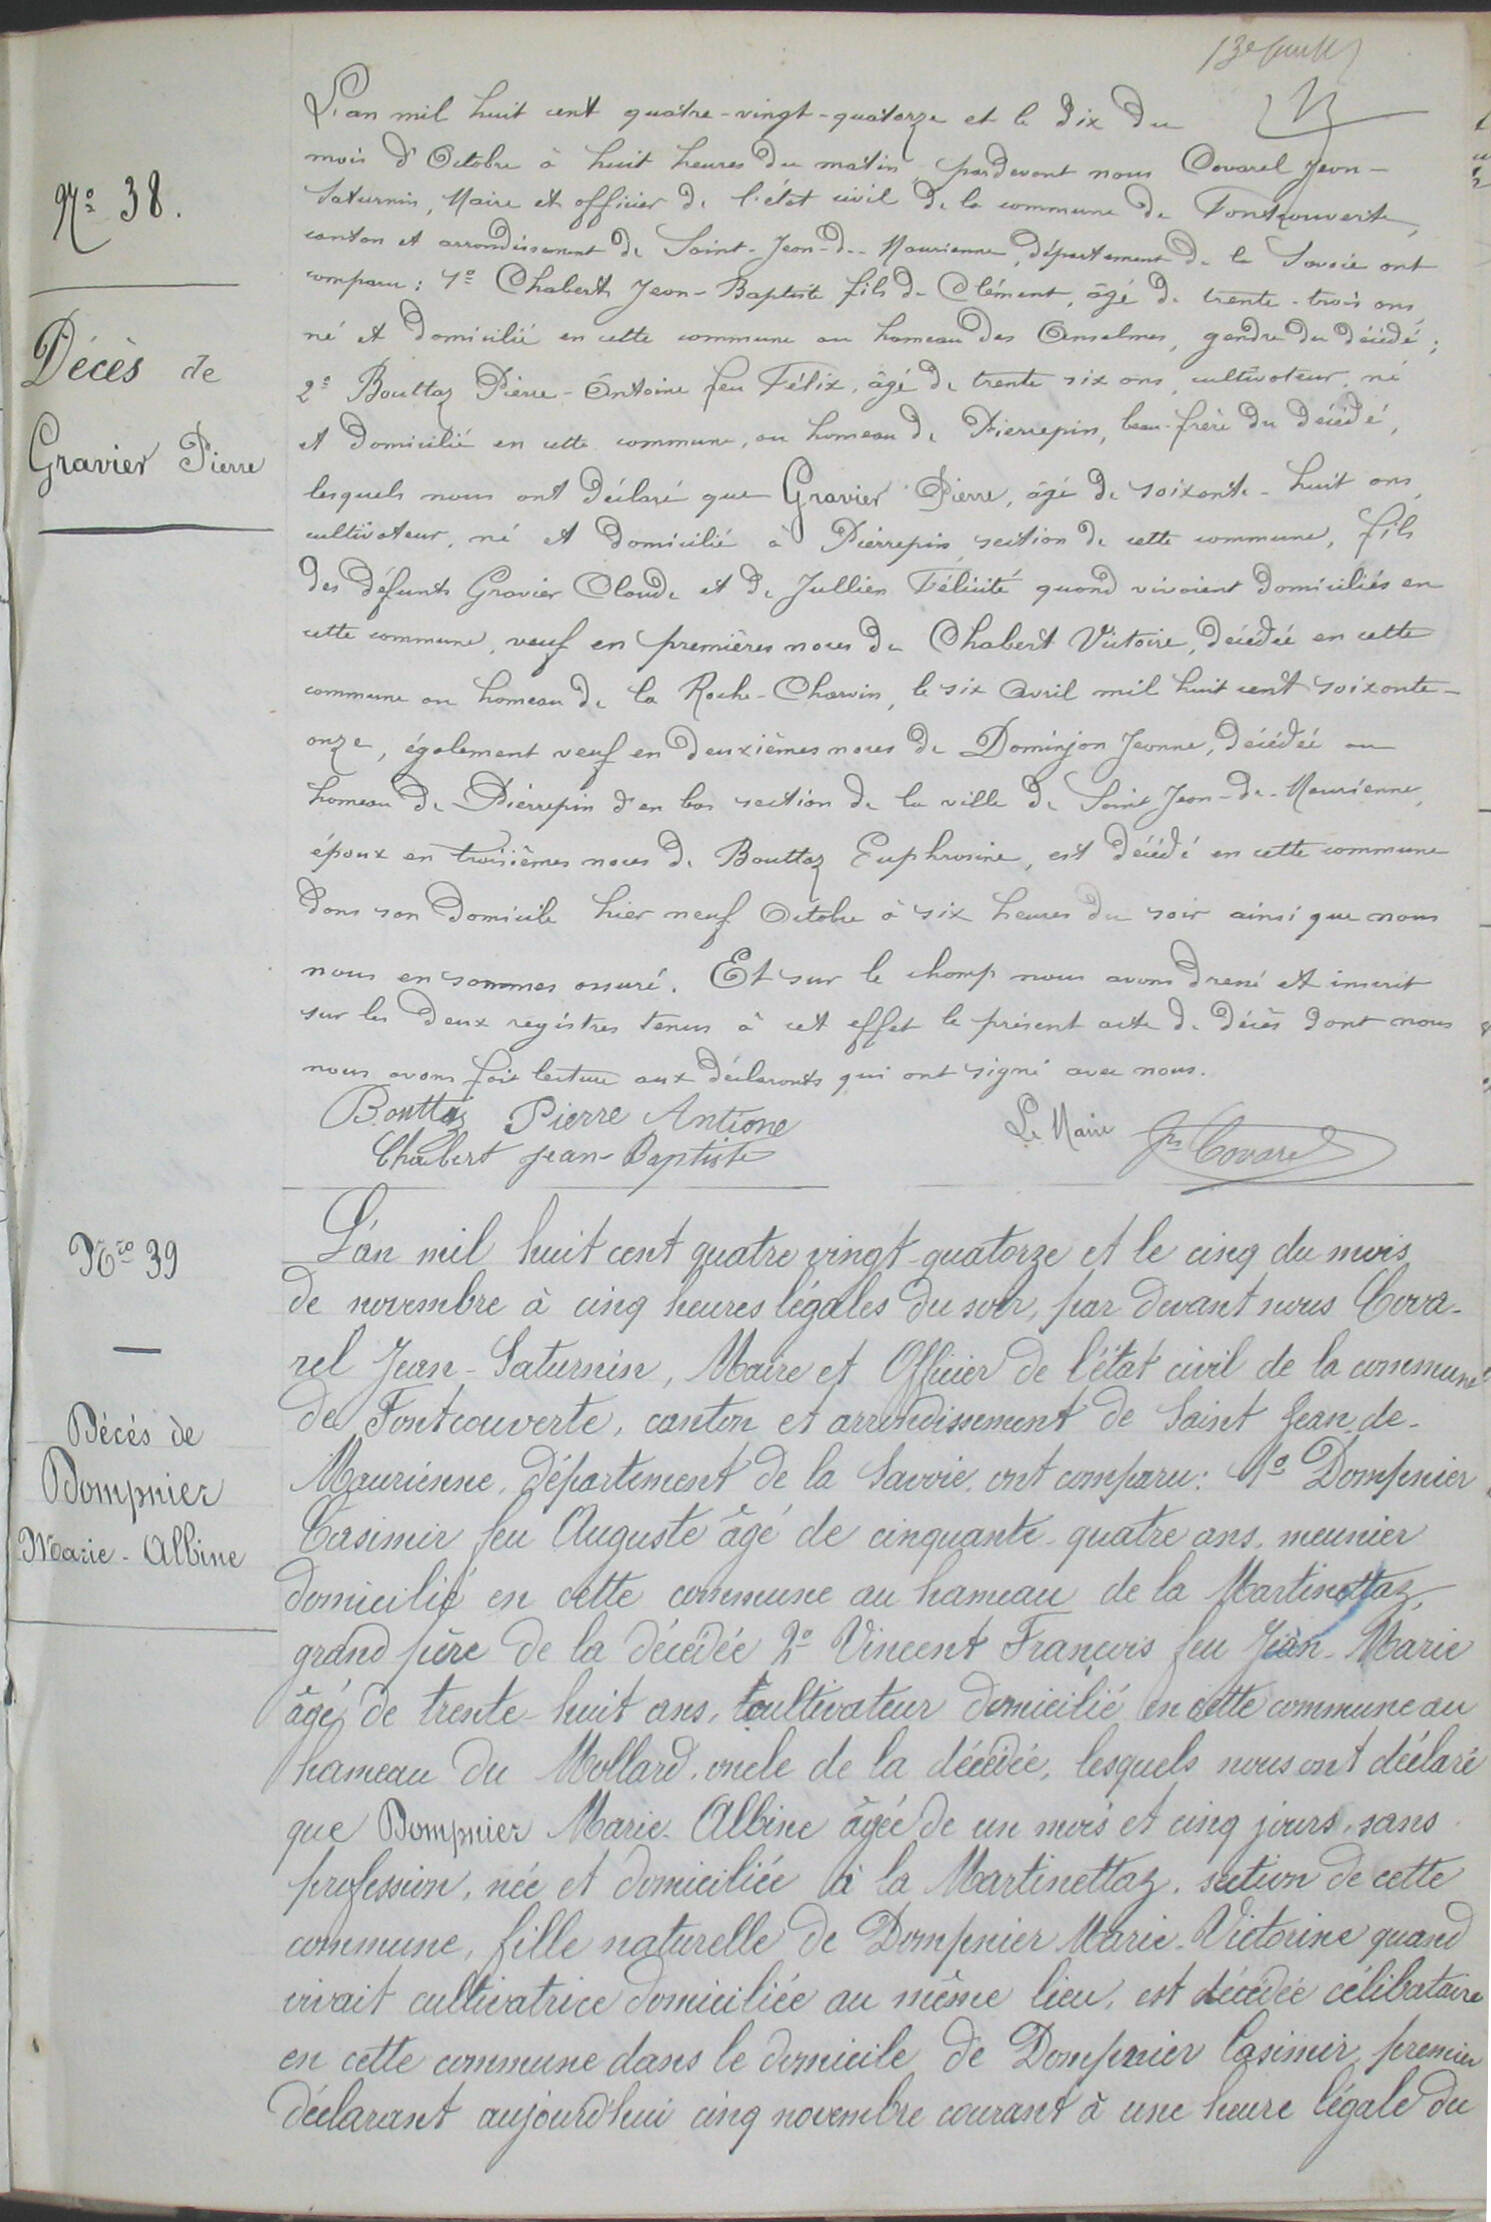 13e feuillet
Nº 38.
Décès de
Gravier Pierre
L'an mil huit cent quatre-vingt-quatorze et le dix du
mois d'Octobre à huit heures du matin, pardevant nous Covarel Jean-
Saturnin, Maire et officier de l'état civil de la commune de Fontcouverte,
canton et arrondissement de Saint-Jean-de-Maurienne, département de la Savoie ont
comparu: 1º Chabert Jean-Baptiste fils de Clément, âgé de trente-trois ans,
né et domicilié en cette commune au hameau des Anselmes, gendre du décédé;
2º Bouttaz Pierre-Antoine feu Félix, âgé de trente six ans, cultivateur, né
et domicilié en cette commune, au hameau de Pierrepin, beau-frère du décédé,
lesquels nous ont déclaré que Gravier Pierre, âgé de soixante-huit ans,
cultivateur, né et domicilié à Pierrepin, section de cette commune, fils
des défunts Gravier Claude et de Jullien Félicité quand vivaient domiciliés en
cette commune, veuf en premières noces de Chabert Victoire, décédée en cette
commune au hameau de la Roche-Charvin, le six Avril mil huit cent soixante-
onze, également veuf en deuxièmes noces de Dominjon Jeanne, décédée au
hameau de Pierrepin d'en bas section de la ville de Saint Jean-de-Maurienne,
époux en troisièmes noces de Bouttaz Euphrosine, est décédé en cette commune
dans son domicile hier neuf Octobre à six heures du soir ainsi que nous
nous en sommes assuré. Et sur le champ nous avons dressé et inscrit
sur les deux registres tenus à cet effet le présent acte de décès dont nous
nous avons fait lecture aux déclarants qui ont signé avec nous.
Bouttaz Pierre Antione
Chabert Jean-Baptiste
Le Maire
Jn Covarel
Nro 39
Décés de
Dompnier
Marie-Albine
L'an mil huit cent quatre vingt-quatorze et le cinq du mois
de novembre à cinq heures légales du soir, par devant nous Cova-
rel Jean-Saturnin, Maire et Officier de l'état civil de la commune
de Fontcouverte, canton et arrondissement de Saint Jean-de-
Maurienne, département de la Savoie, ont comparu: 1º Dompnier
Casimir feu Auguste âgé de cinquante-quatre ans, meunier
domicilié en cette commune au hameau de la Martinettaz,
grand père de la décédée 2º Vincent François feu Jean-Marie
âgé de trente-huit ans, cultivateur domicilié en cette commune au
hameau du Mollard, oncle de la décédée, lesquels nous ont déclaré
que Dompnier Marie-Albine âgée de un mois et cinq jours, sans
profession, née et domiciliée à la Martinettaz, section de cette
commune, fille naturelle de Dompnier Marie-Victorine quand
vivait cultivatrice domiciliée au même lieu, est décédée célibataire
en cette commune dans le domicile de Dompnier Casimir, premier
déclarant aujourd'hui cinq novembre courant à une heure légale du